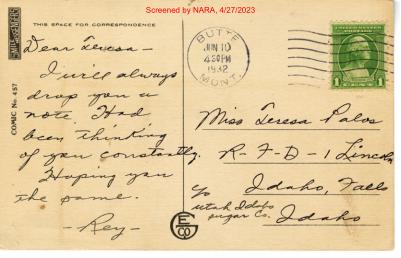 Screened by NARA, 4/27/2023
THIS SPACE FOR CORRESPONDENCE
Dear Teresa –
I will always
drop you a
note. Had
been thinking
of you constantly.
Hoping you
the same.
– Rey –
COMIC No. 457
BUTTE
JUN 10
4 30 PM
1932
MONT.
1
Miss Teresa Palos
R-F-D-1 Lincoln
c/o Idaho, Falls
Utah Idaho
sugar Co. Idaho
E
CO